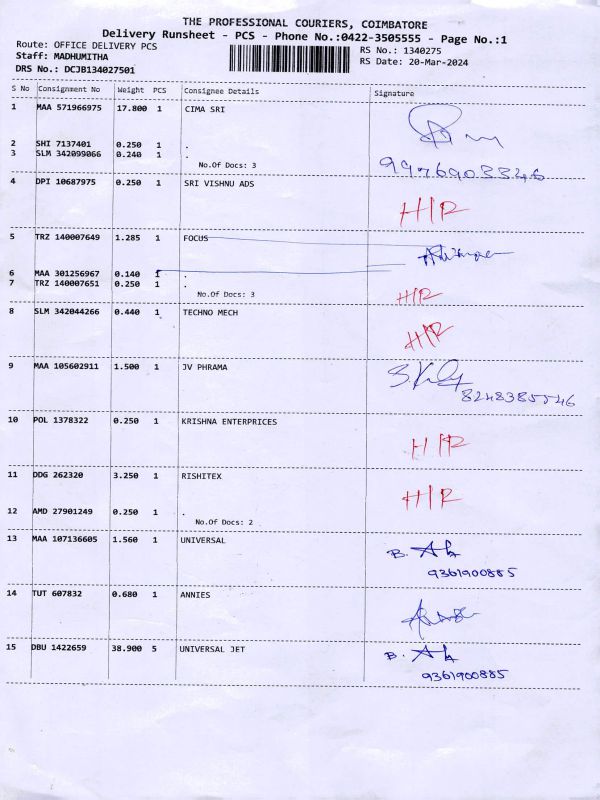 THE PROFESSIONAL COURIERS, COIMBATORE
Delivery Runsheet - PCS - Phone No.:0422-3505555 - Page No.:1
Route: OFFICE DELIVERY PCS
RS No.: 1340275
Staff: MADHUMITHA
RS Date: 20-Mar-2024
DRS No.: DCJB134027501
S No Consignment No Weight PCS Consignee Details Signature
1 MAA 571966975 17.800 1 CIMA SRI
2 SHI 7137401 0.250 1 .
3 SLM 342099066 0.240 1 .
No.Of Docs: 3
9976903346
4 DPI 10687975 0.250 1 SRI VISHNU ADS
H/R
5 TRZ 140007649 1.285 1 FOCUS
6 MAA 301256967 0.140 1 .
7 TRZ 140007651 0.250 1 .
No.Of Docs: 3
H/R
8 SLM 342044266 0.440 1 TECHNO MECH
H/R
9 MAA 105602911 1.500 1 JV PHRAMA
8248385546
10 POL 1378322 0.250 1 KRISHNA ENTERPRICES
H/R
11 DDG 262320 3.250 1 RISHITEX
H/R
12 AMD 27901249 0.250 1 .
No.Of Docs: 2
13 MAA 107136605 1.560 1 UNIVERSAL
9361900885
14 TUT 607832 0.680 1 ANNIES
15 DBU 1422659 38.900 5 UNIVERSAL JET
9361900885